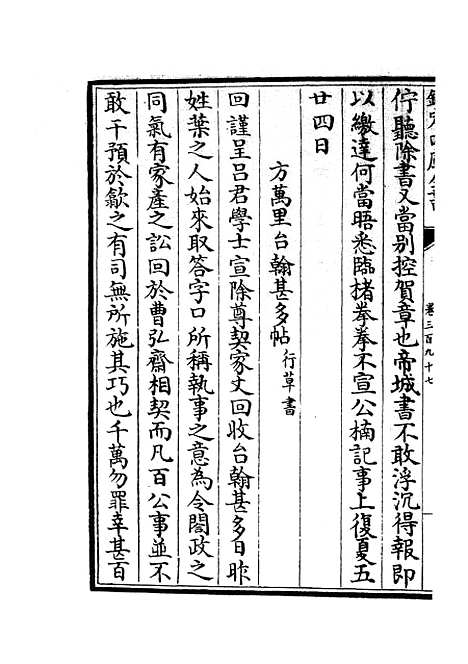 欽定四庫全書
卷三百九十七
佇聽除書又當别控賀章也帝城書不敢浮沉得報即
以繳達何當晤悉臨楮拳拳不宣公楠記事上復夏五
廿四日
方萬里台翰甚多帖行草書
回謹呈吕君學士宣除尊契家丈回收台翰甚多日昨
姓葉之人始來取答字口所稱執事之意為令閤政之
同氣有家產之訟回於曹弘齋相契而凡百公事並不
敢干預於歙之有司無所施其巧也千萬勿罪幸甚百